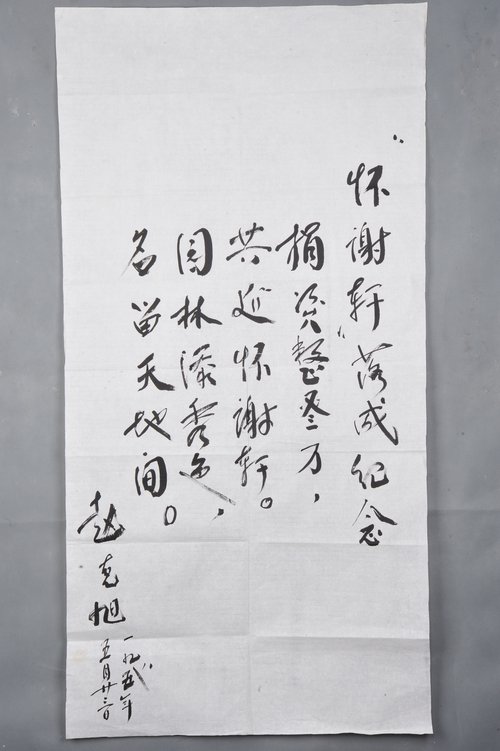 “怀谢轩”落成纪念
捐资整叁万，
共建怀谢轩。
园林添秀色，
名留天地间。
赵克旭
一九八五年
五月廿三日